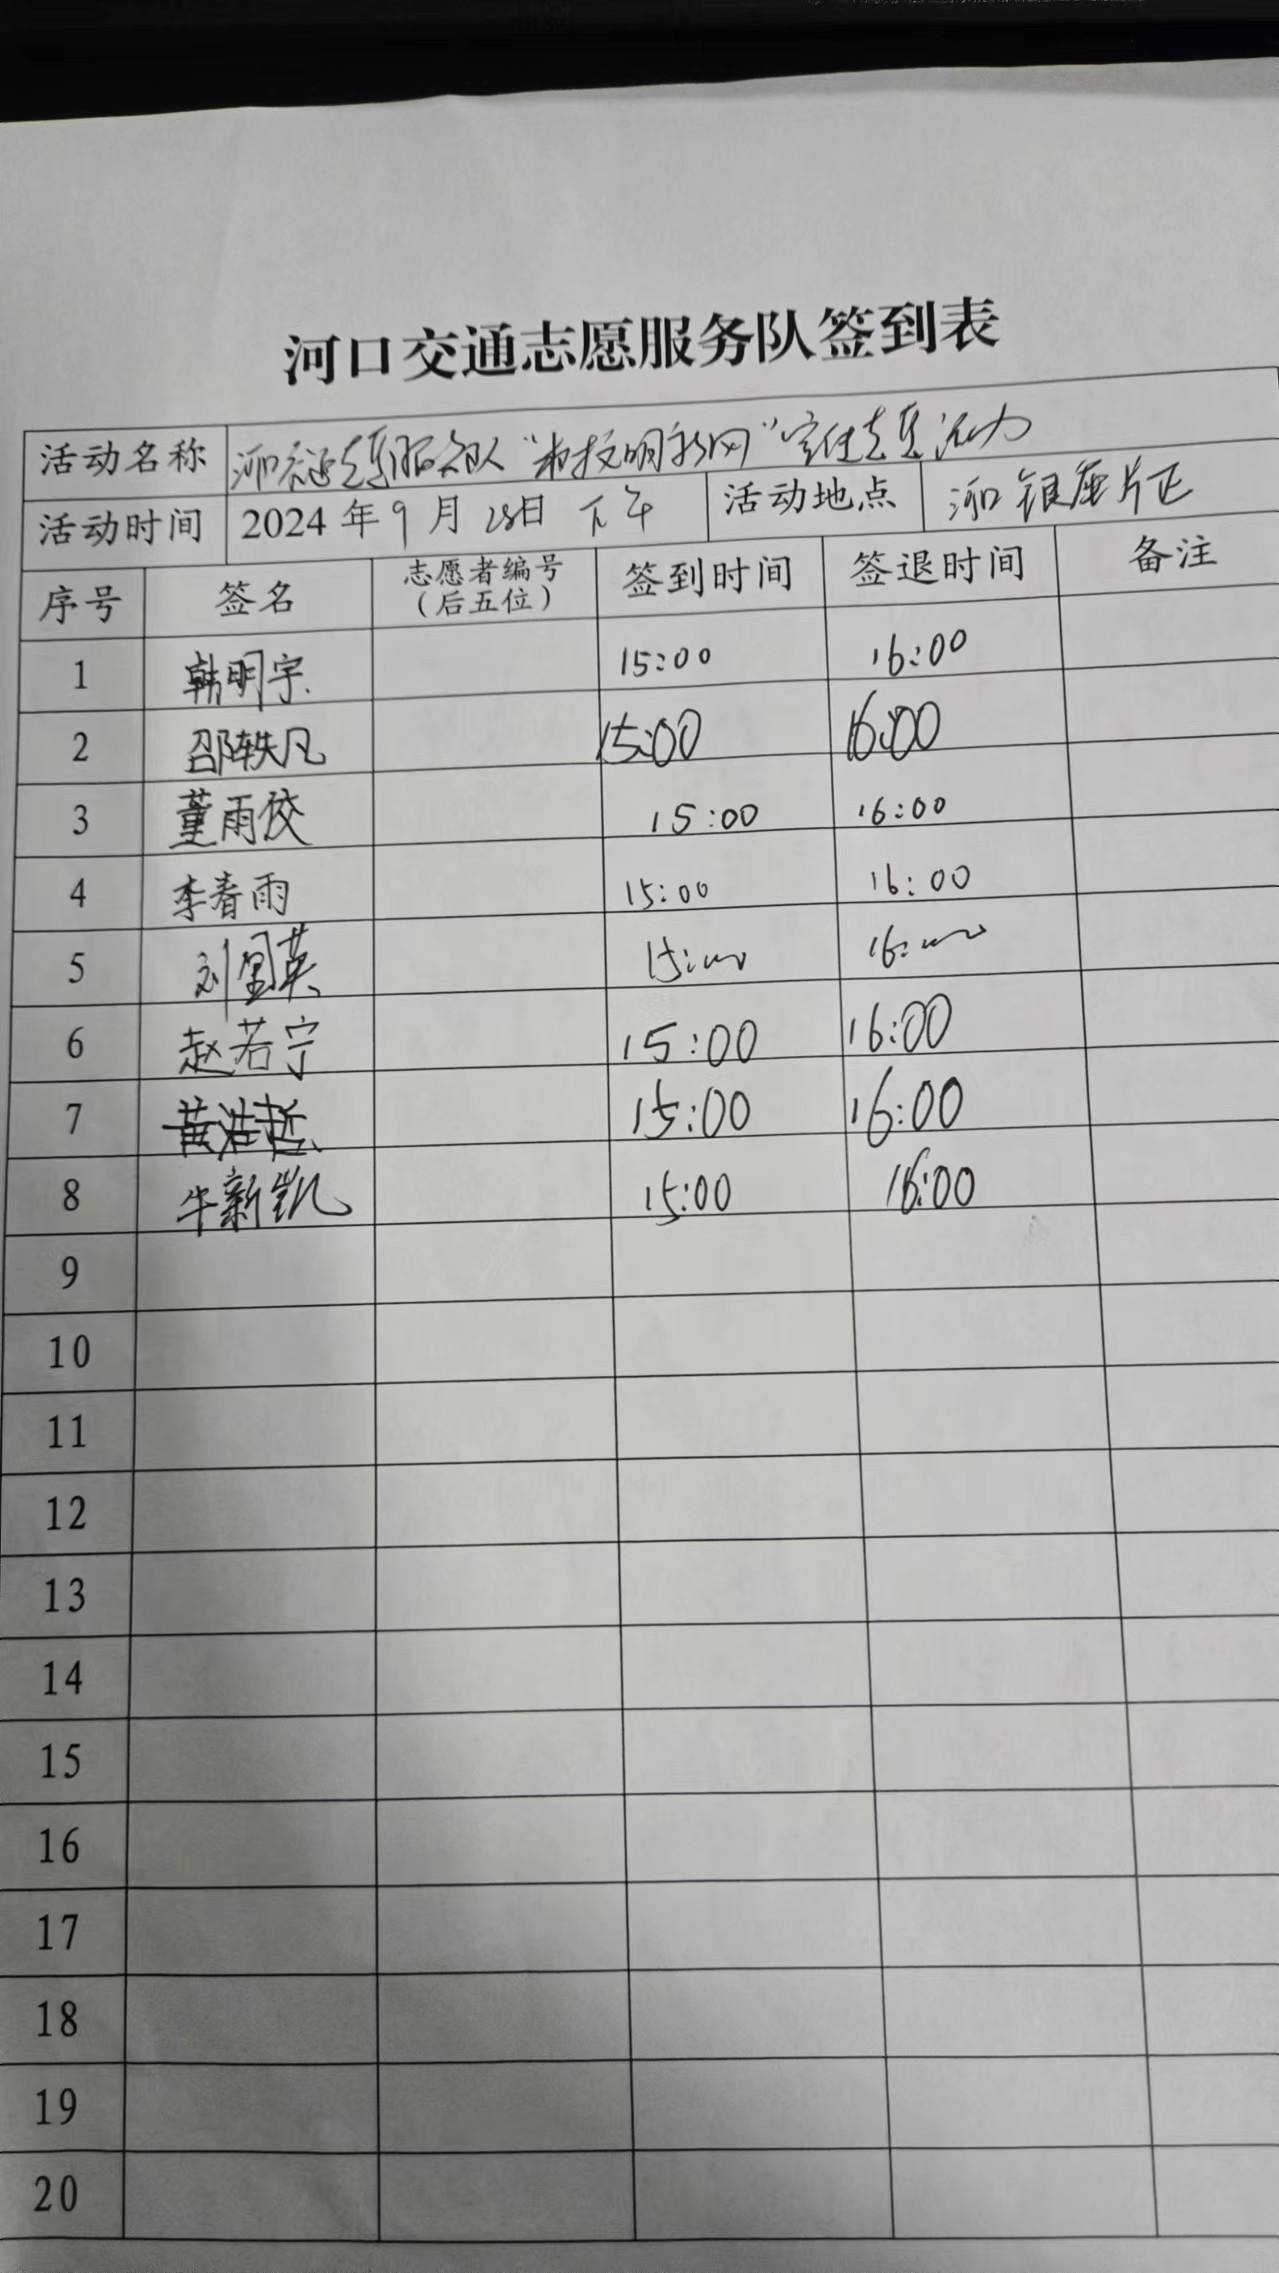 河口交通志愿服务队签到表
活动名称 河口交通志愿服务队“ ”宣传志愿活动
活动时间 2024年9月28日 下午 活动地点 河口银座片区
序号 签名 志愿者编号（后五位） 签到时间 签退时间 备注
1 韩明宇 15:00 16:00
2 邵轶凡 15:00 16:00
3 董雨佼 15:00 16:00
4 李春雨 15:00 16:00
5 刘英 15:00 16:00
6 赵若宁 15:00 16:00
7 黄浩哲 15:00 16:00
8 牛新凯 15:00 16:00
9
10
11
12
13
14
15
16
17
18
19
20